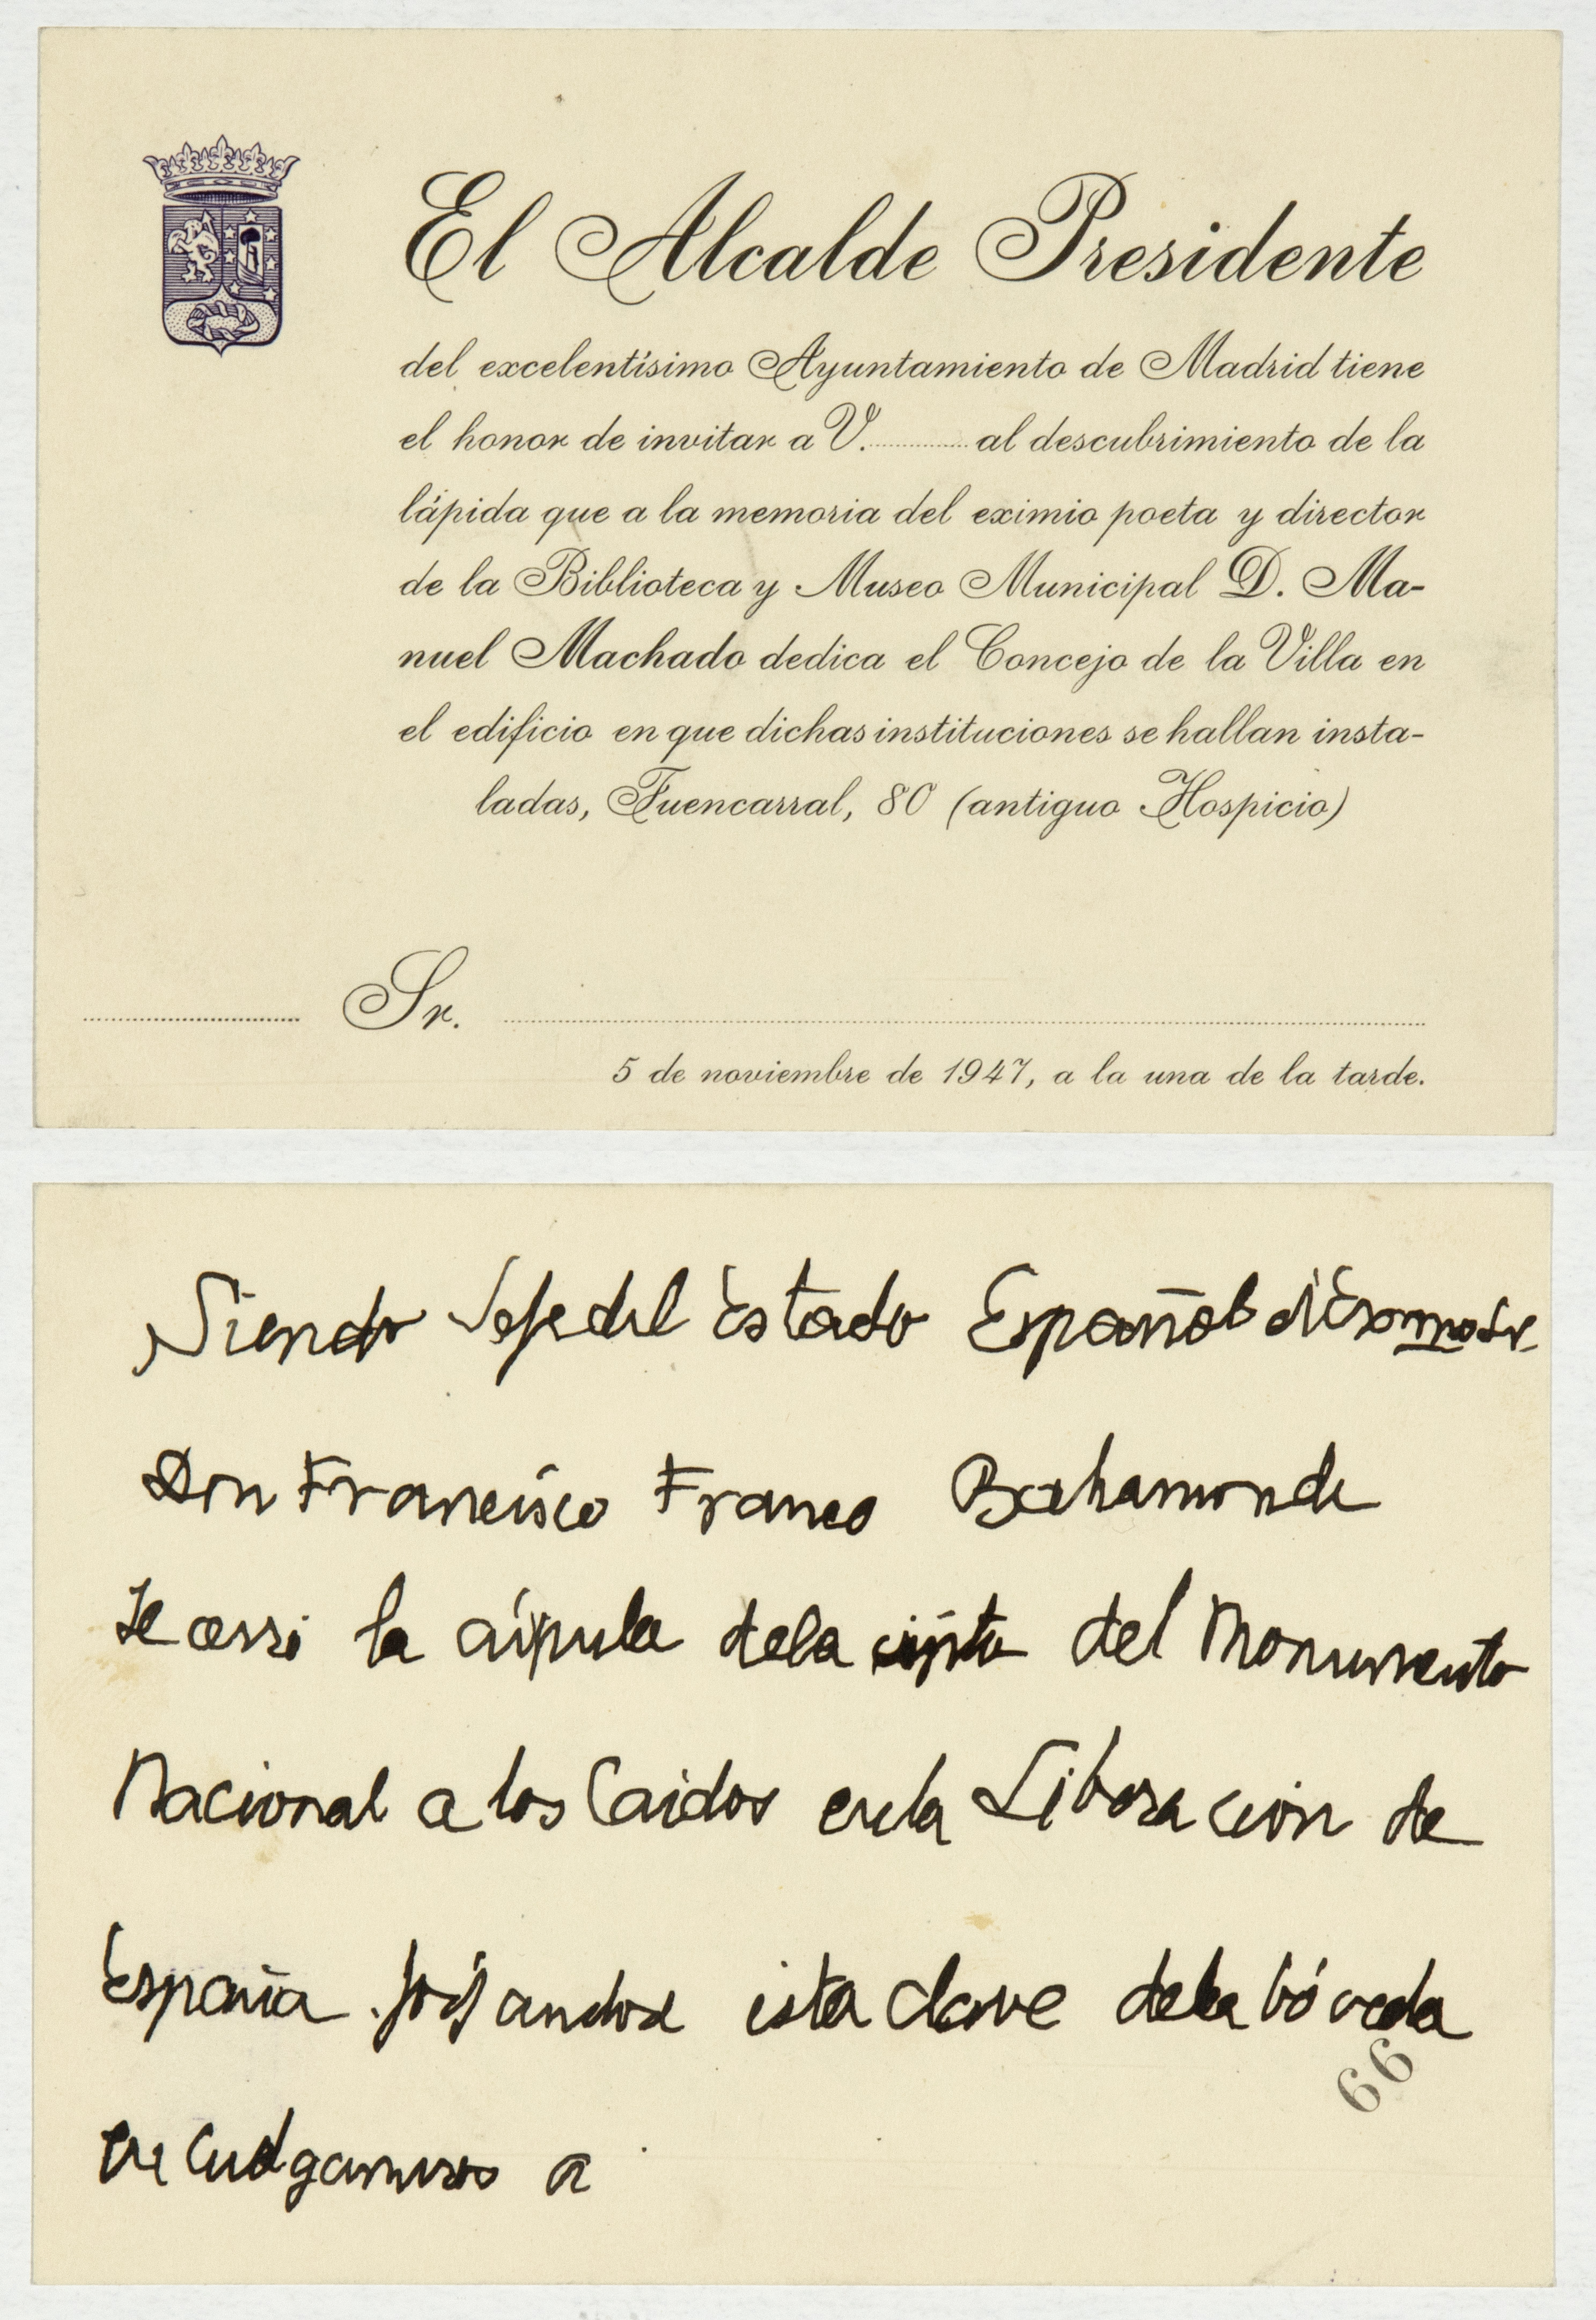 El Alcalde Presidente
del excelentísimo Ayuntamiento de Madrid tiene
el honor de invitar a V. al descubrimiento de la
lápida que a la memoria del eximio poeta y director
de la Biblioteca y Museo Municipal D. Ma-
nuel Machado dedica el Concejo de la Villa en
el edificio en que dichas instituciones se hallan insta-
ladas, Fuencarral, 80 (antiguo Hospicio)
Sr.
5 de noviembre de 1947, a la una de la tarde.
Siendo Jefe del Estado Español el Excmo Sr.
Don Francisco Franco Bahamonde
se cerró la cúpula de la cripta del Monumento
Nacional a los Caidos en la Liberación de
España forjandose esta clave de la bóveda
en Cuelgamuros a
66